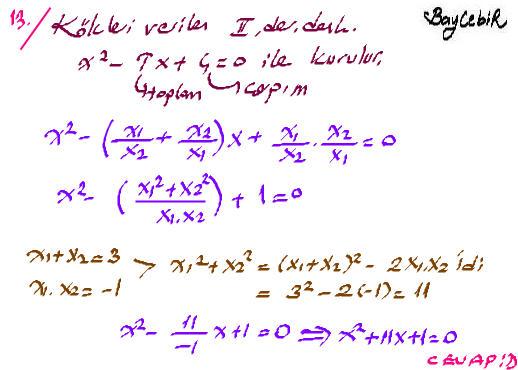 13./ Kökleri verilen II. der. denk.
BayCebir
x² - Tx + Ç = 0 ile kurulur.
toplam çarpım
x² - (x₁/x₂ + x₂/x₁)x + x₁/x₂ · x₂/x₁ = 0
x² - (x₁² + x₂² / x₁.x₂) + 1 = 0
x₁ + x₂ = 3 > x₁² + x₂² = (x₁ + x₂)² - 2x₁.x₂ idi
x₁. x₂ = -1 = 3² - 2(-1) = 11
x² - 11/-1 x + 1 = 0 ⇒ x² + 11x + 1 = 0
CEVAP: D